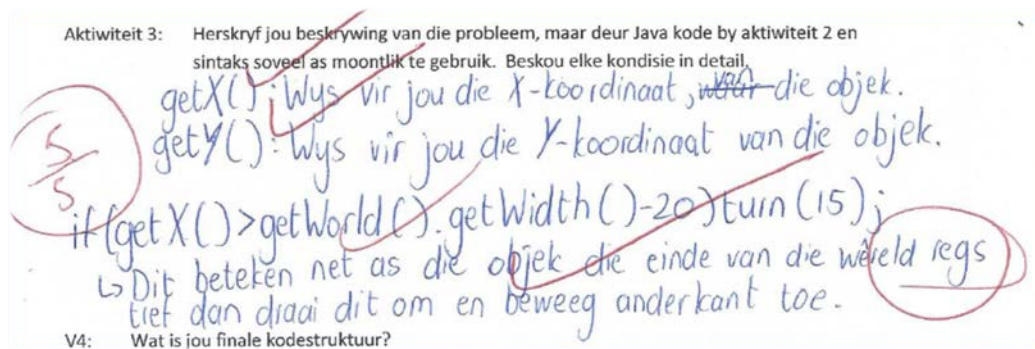 Aktiwiteit 3: Herskryf jou beskrywing van die probleem, maar deur Java kode by aktiwiteit 2 en
sintaks soveel as moontlik te gebruik. Beskou elke kondisie in detail.
getX(): Wys vir jou die X-koordinaat, van die objek.
getY(): Wys vir jou die Y-koordinaat van die objek.
5/5
if (getX()>getWorld().getWidth()-20)turn(15);
↳ Dit beteken net as die objek die einde van die wêreld regs
tref dan draai dit om en beweeg anderkant toe.
V4: Wat is jou finale kodestruktuur?